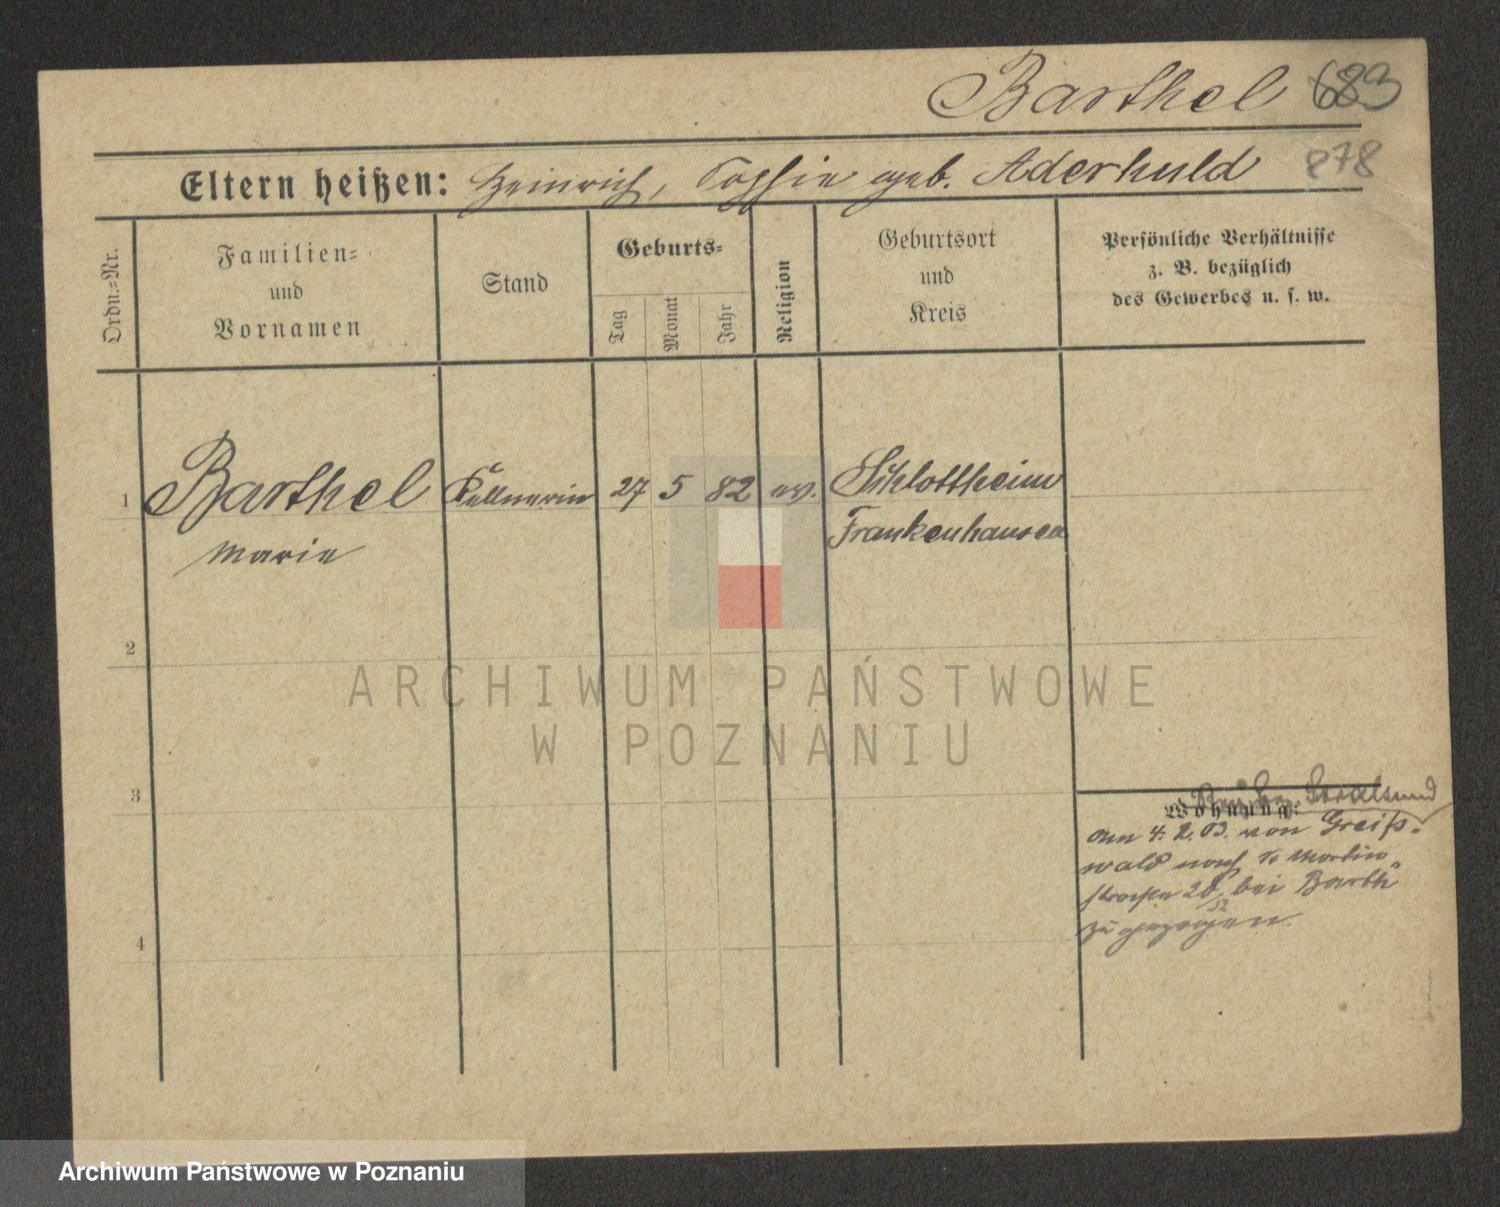 Barthel 683
Eltern heißen: Heinrich, Sophie geb. Aderhuld 878
Ordn.=Nr.
Familien=
und
Vornamen
Stand
Geburts=
Tag
Monat
Jahr
Religion
Geburtsort
und
Kreis
Persönliche Verhältnisse
z. B. bezüglich
des Gewerbes u. s. w.
1 Barthel Kellnerin 27 5 82 ev. Schlottheim
Marie Frankenhausen
2
3
4
Stralsund
Wohnung:
Am 4. 2. 03. von Greifs-
wald nach St. Martin
straße 28 bei Barth
zugezogen.
ARCHIWUM PAŃSTWOWE
W POZNANIU
Archiwum Państwowe w Poznaniu